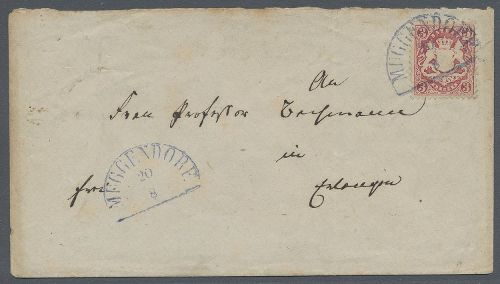 MEGGENDORF
3 3
An
Frau Professor
in
MEGGENDORF
20
8
Erlangen